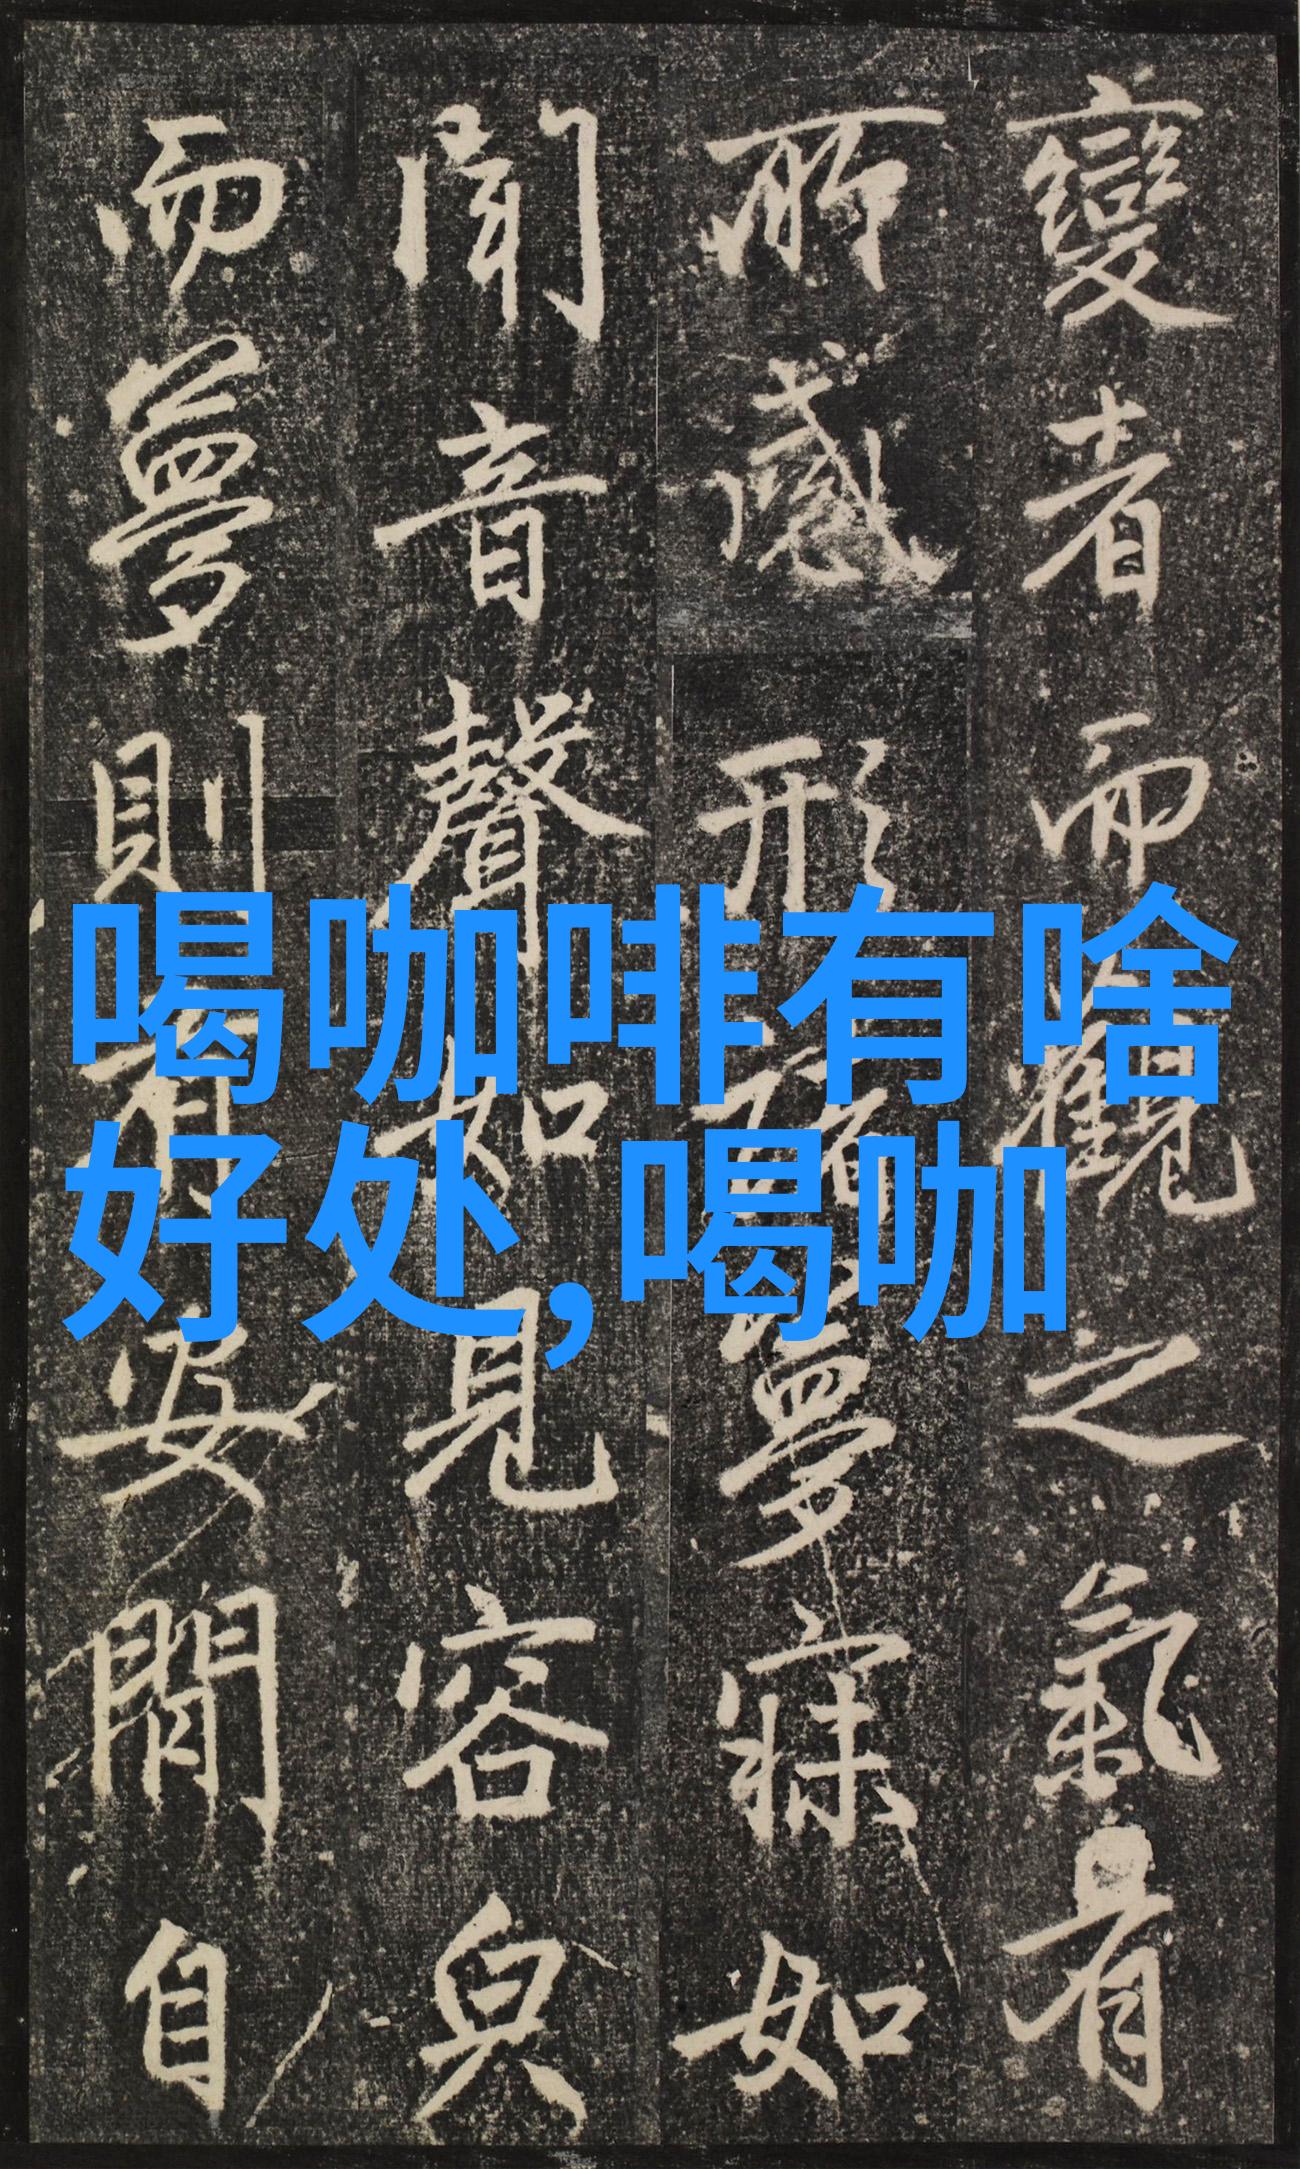 變者而觀之氣有
所感形諸夢寐如
聞音聲如見容皃
而夢則有安閒自
喝咖啡有啥
好处,喝咖